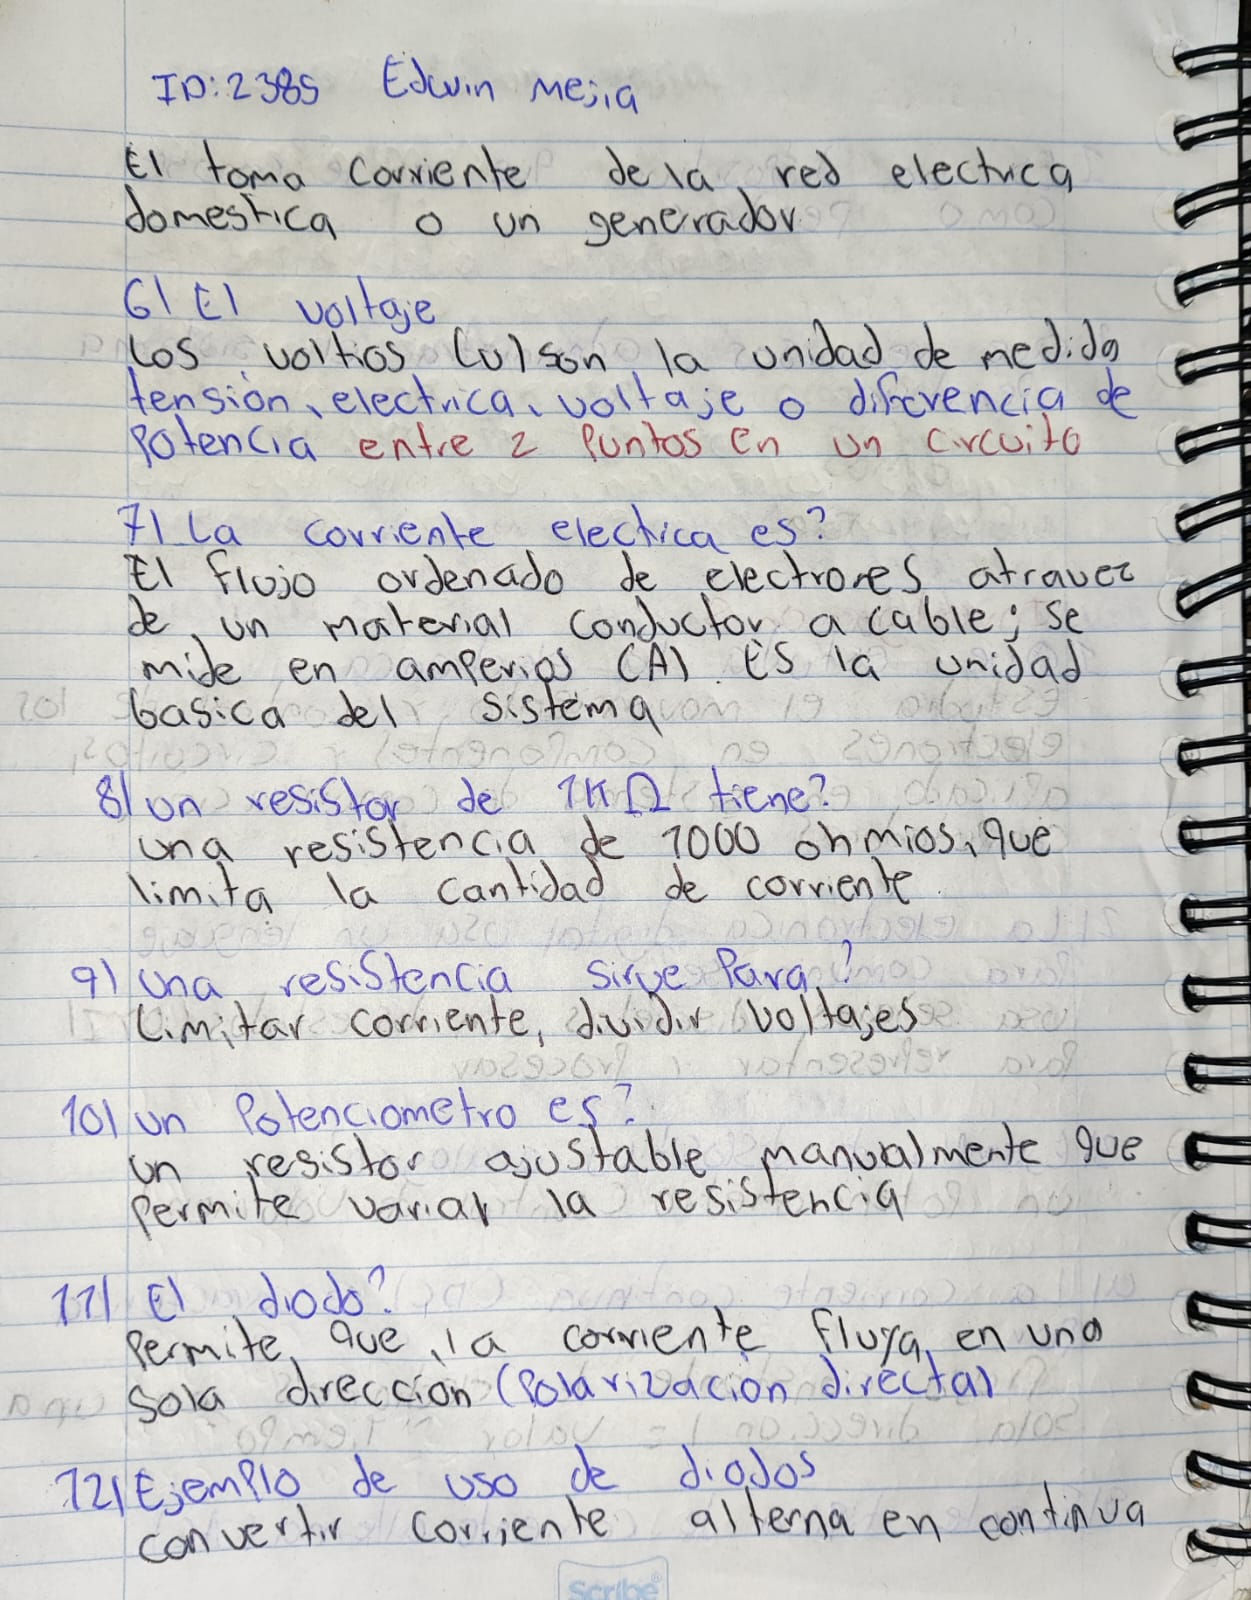 ID:2385 Edwin Mejia
El toma corriente de la red electrica
domestica o un generador
6) El voltaje
Los voltios (v) son la unidad de medida
tensión, electrica, voltaje o diferencia de
Potencia entre 2 Puntos en un circuito
7) La corriente electica es?
El flujo ordenado de electrones atravez
de un material conductor a cable; se
mide en amperios (A). Es la unidad
basica del sistema
8) un resistor de 1KΩ tiene?
una resistencia de 1000 ohmios, que
limita la cantidad de corriente.
9) una resistencia sirve Para?
Limitar corriente, dividir voltajes
10) un Potenciometro es?
un resistor ajustable manualmente que
Permite variar la resistencia
11) El diodo?
Permite que la corriente fluya en una
sola dirección (Polarización directa)
12) Ejemplo de uso de diodos
convertir corriente alterna en continua
Scribe